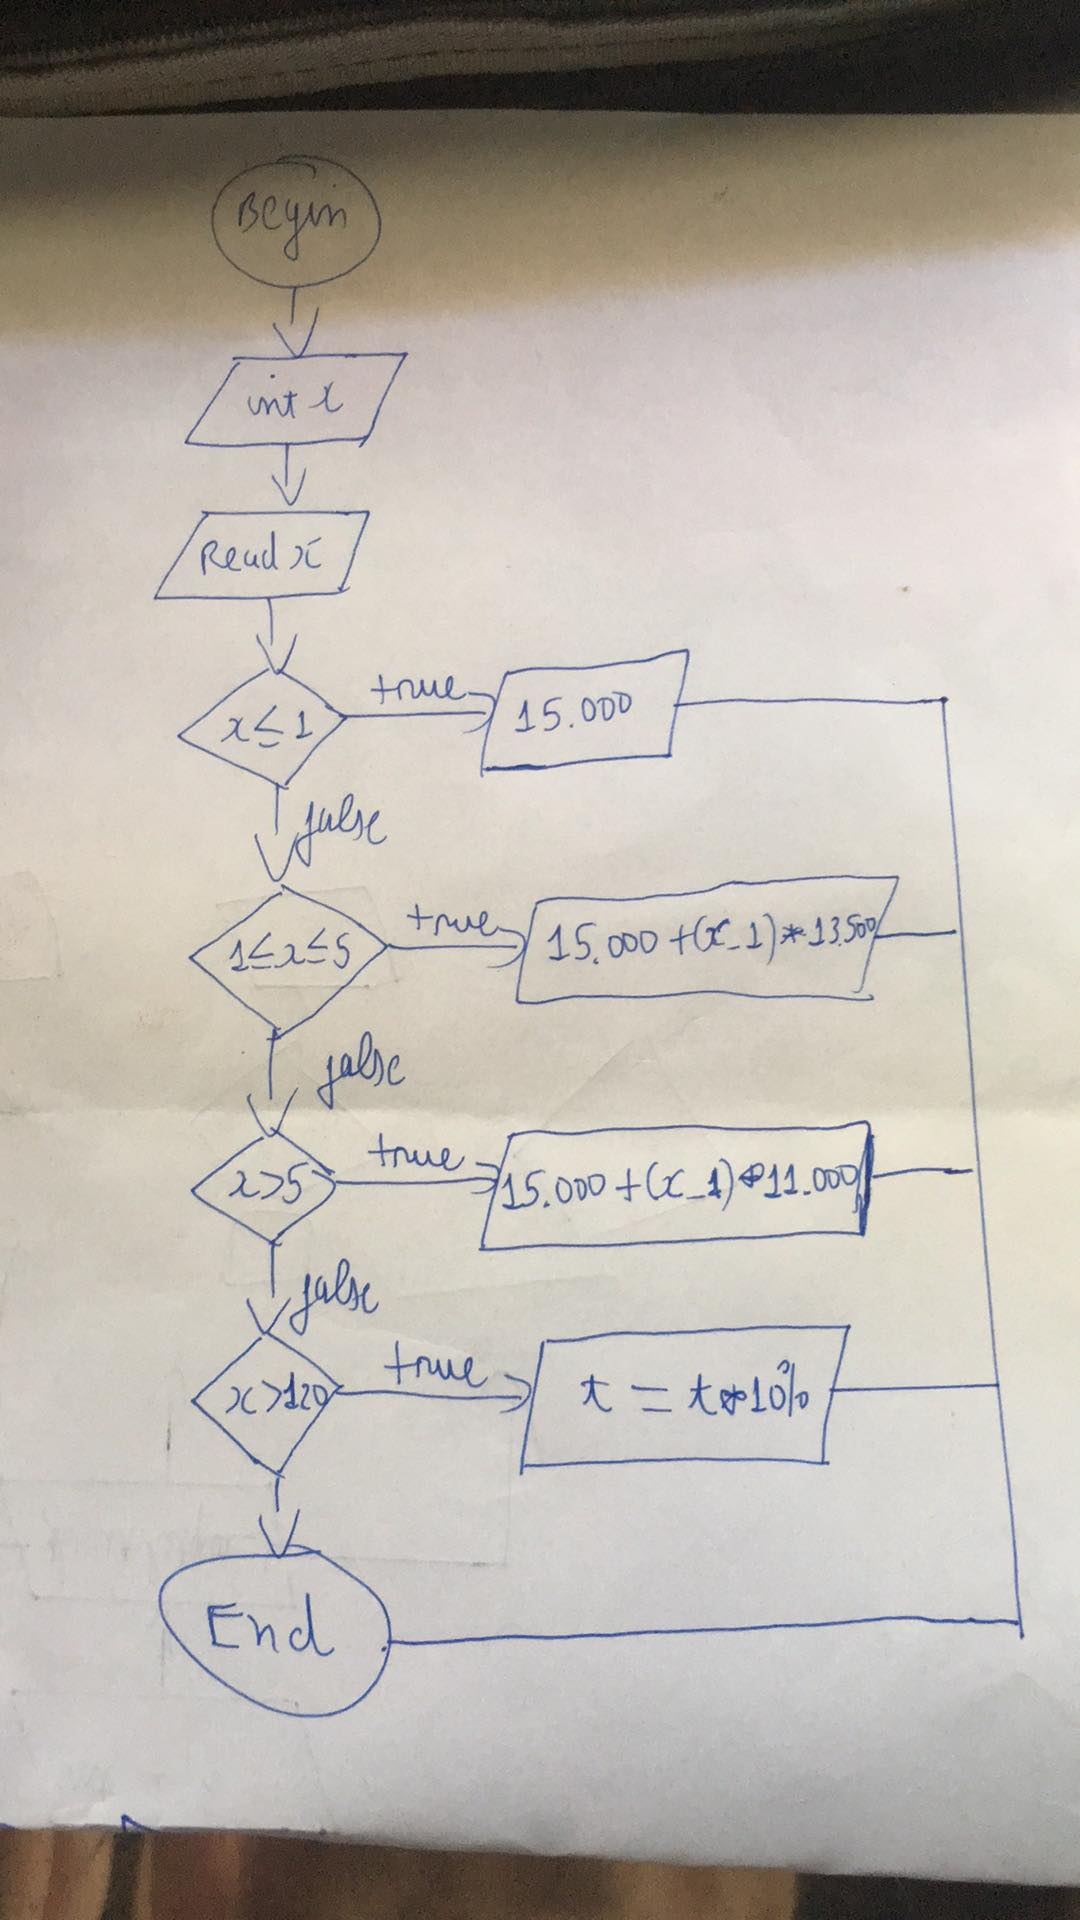 Begin
int x
Read x
x≤1
true
15.000
false
1≤x≤5
true
15.000 +(x_1)*13.500
false
x>5
true
15.000 +(x_1)*11.000
false
x>120
true
t = t*10%
End